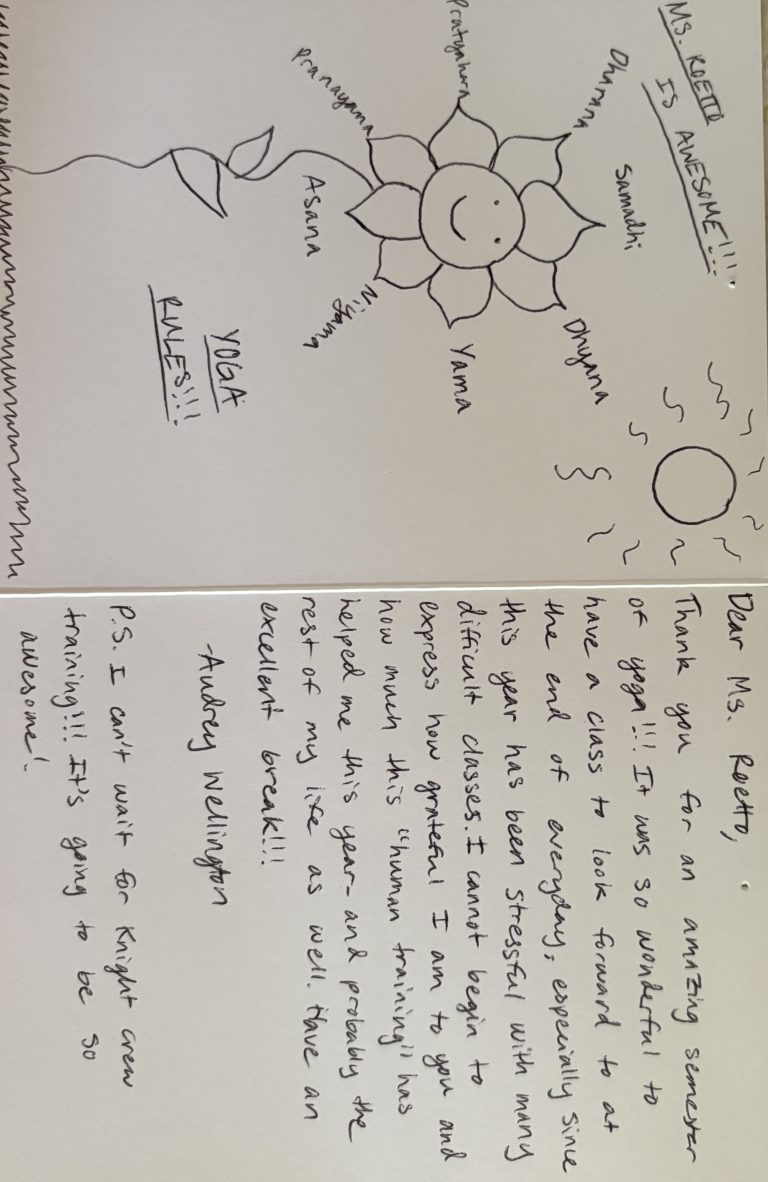 MS. ROETTO
IS AWESOME!!!
Samadhi
Dharana
Dhyana
Pratyahara
Yama
Pranayama
Niyama
Asana
YOGA
RULES!!!
Dear Ms. Roetto,
Thank you for an amazing semester
of yoga!!! It was so wonderful to
have a class to look forward to at
the end of everyday, especially since
this year has been stressful with many
difficult classes. I cannot begin to
express how grateful I am to you and
how much this "human training" has
helped me this year- and probably the
rest of my life as well. Have an
excellent break!!!
-Audrey Wellington
P.S. I can't wait for Knight crew
training!!! It's going to be so
awesome!